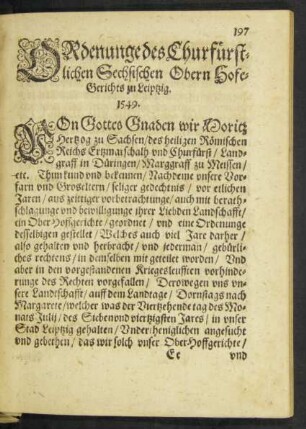 197
ORdenunge des Churfürst-
lichen Sechsischen Obern Hofe-
Gerichts zu Leiptzig.
1549.
VOn Gottes Gnaden wir Moritz
Hertzog zu Sachsen/ des heiligen Römischen
Reichs Ertzmarschalh vnd Churfürst/ Land-
graff in Düringen/ Marggraff zu Meissen/
etc. Thun kund vnd bekennen/ Nachdeme vnsere Vor-
farn vnd Groseltern/ seliger gedechtnis/ vor etlichen
Jaren/ aus zeitiger vorbetrachtunge/ auch mit berath-
schlagunge vnd bewilligunge ihrer Liebden Landschafft/
ein Ober Hoffgerichte/ geordnet/ vnd eine Ordenunge
desselbigen gestellet/ Welches auch viel Jare darher/
also gehalten vnd herbracht/ vnd jederman/ gebürli-
ches rechtens/ in demselben mit geteilet worden/ Vnd
aber in den vorgestandenen Kriegesleufften vorhinde-
runge des Rechten vorgefallen/ Derowegen vns vn-
sere Landschafft/ auff dem Landtage/ Dornstags nach
Margarete/ welcher was der Viertzehende tag des Mo-
nats Julij/ des Sieben vnd viertzigsten Jares/ in vnser
Stad Leiptzig gehalten/ Vndertheniglichen angesucht
vnd gebethen/ das wir solch vnser Ober Hoffgerichte/
Cc vnd